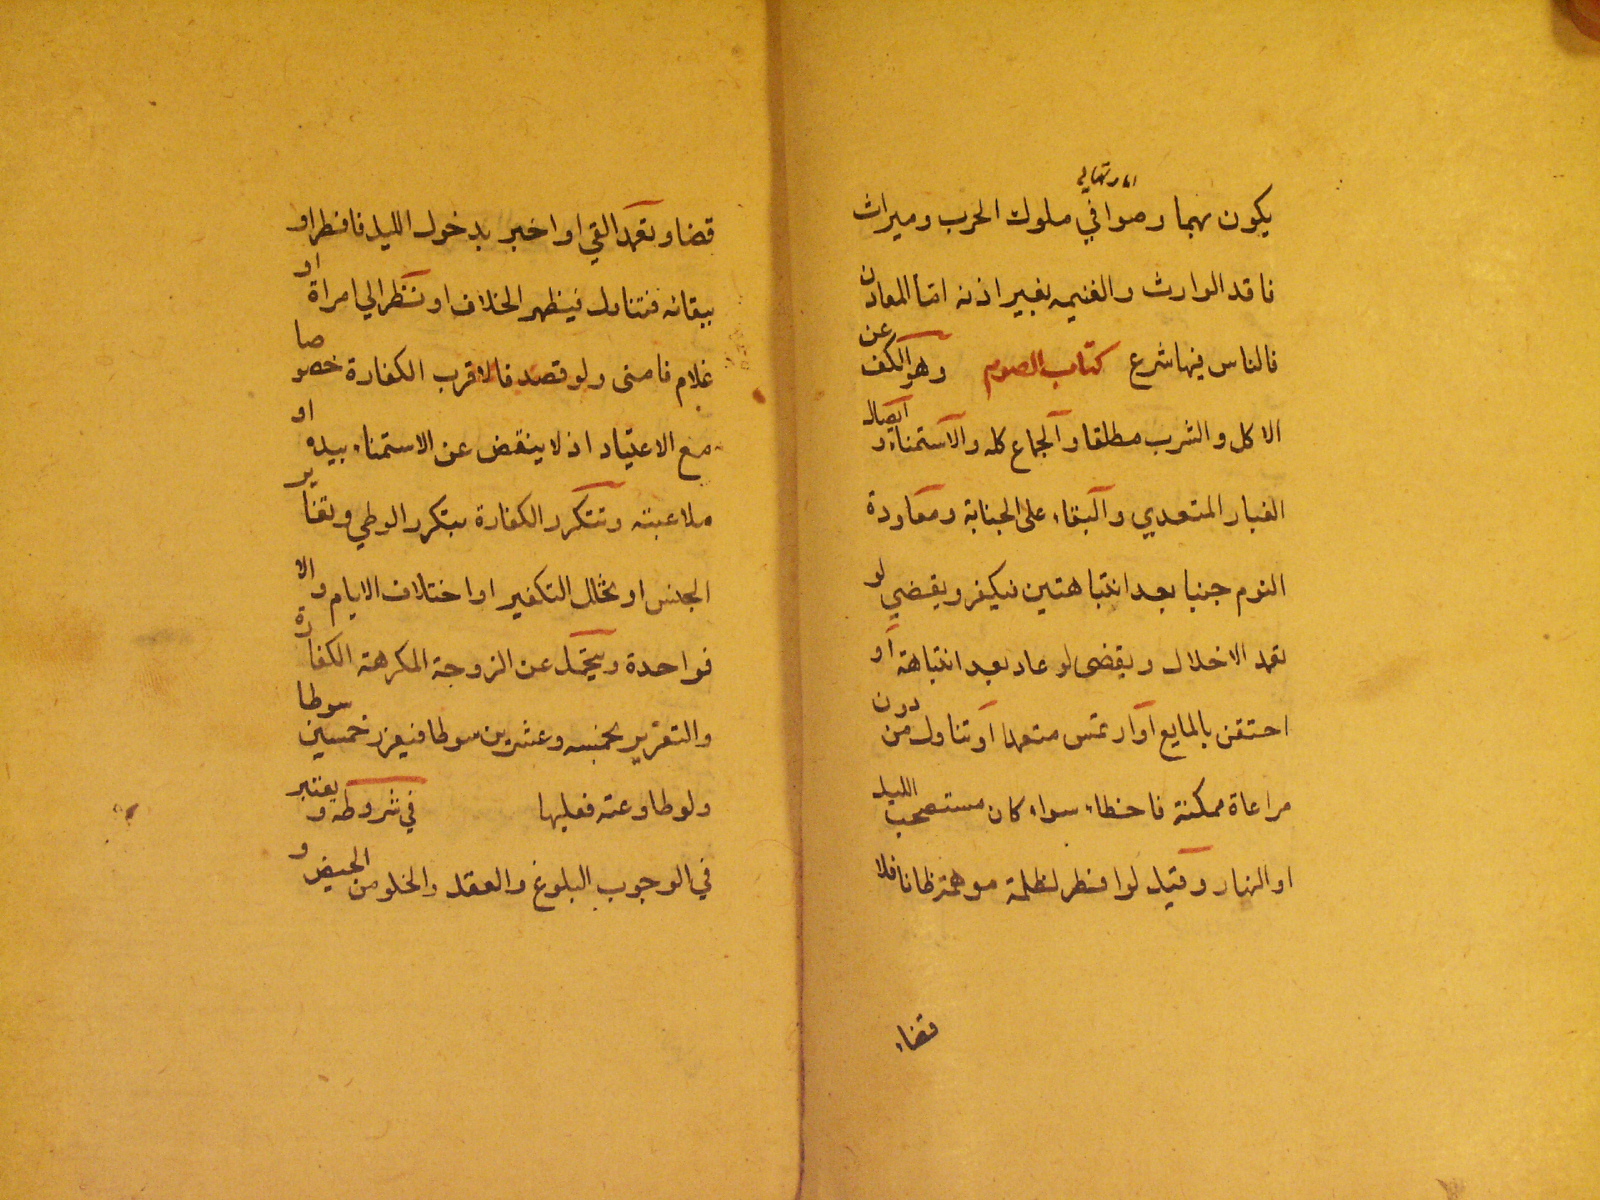 يكون بهما وصوافي ملوك الحرب وميراث
فاقد الوارث والغنيمه بغير اذنه اما المعادن
فالناس فيها شرع كتاب الصوم وهو الكف عن
الاكل والشرب مطلقا والجماع كله والاستمناء و ايصال
الغبار المتعدي والبقاء على الجنابة ومعاودة
النوم جنبا بعد انتباهتين فيكفر ويقضي لو
تعمد الاخلال ويقضى لو عاد بعد انتباهة او
احتقن بالمايع او ارتمس متعمدا او تناول من دون
مراعاة ممكنة فاخطاء سواء كان مستصحب الليل
او النهار وقيل لو افطر لظلمة موهمة ظانا فلا
قضاء
قضا وتعمد القي او اخبر بدخول الليل فافطر او
ببقائه فتناول فيظهر الخلاف او نظر الي امراة او
غلام فامنى ولو قصد فالاقرب الكفارة خصوصا
مع الاعتياد اذ لا ينقض عن الاستمناء بيده او
ملاعبته وتتكرر الكفارة بتكرر الوطي وتغاير
الجنس او تخلل التكفير او اختلاف الايام والا
فواحدة ويتحمل عن الزوجة المكرهة الكفارة
والتعزير بخمسه وعشرين سوطا فيعزر خمسين سوطا
ولو طاوعته فعليها في شروطه ويعتبر
في الوجوب البلوغ والعقل والخلو من الحيض و